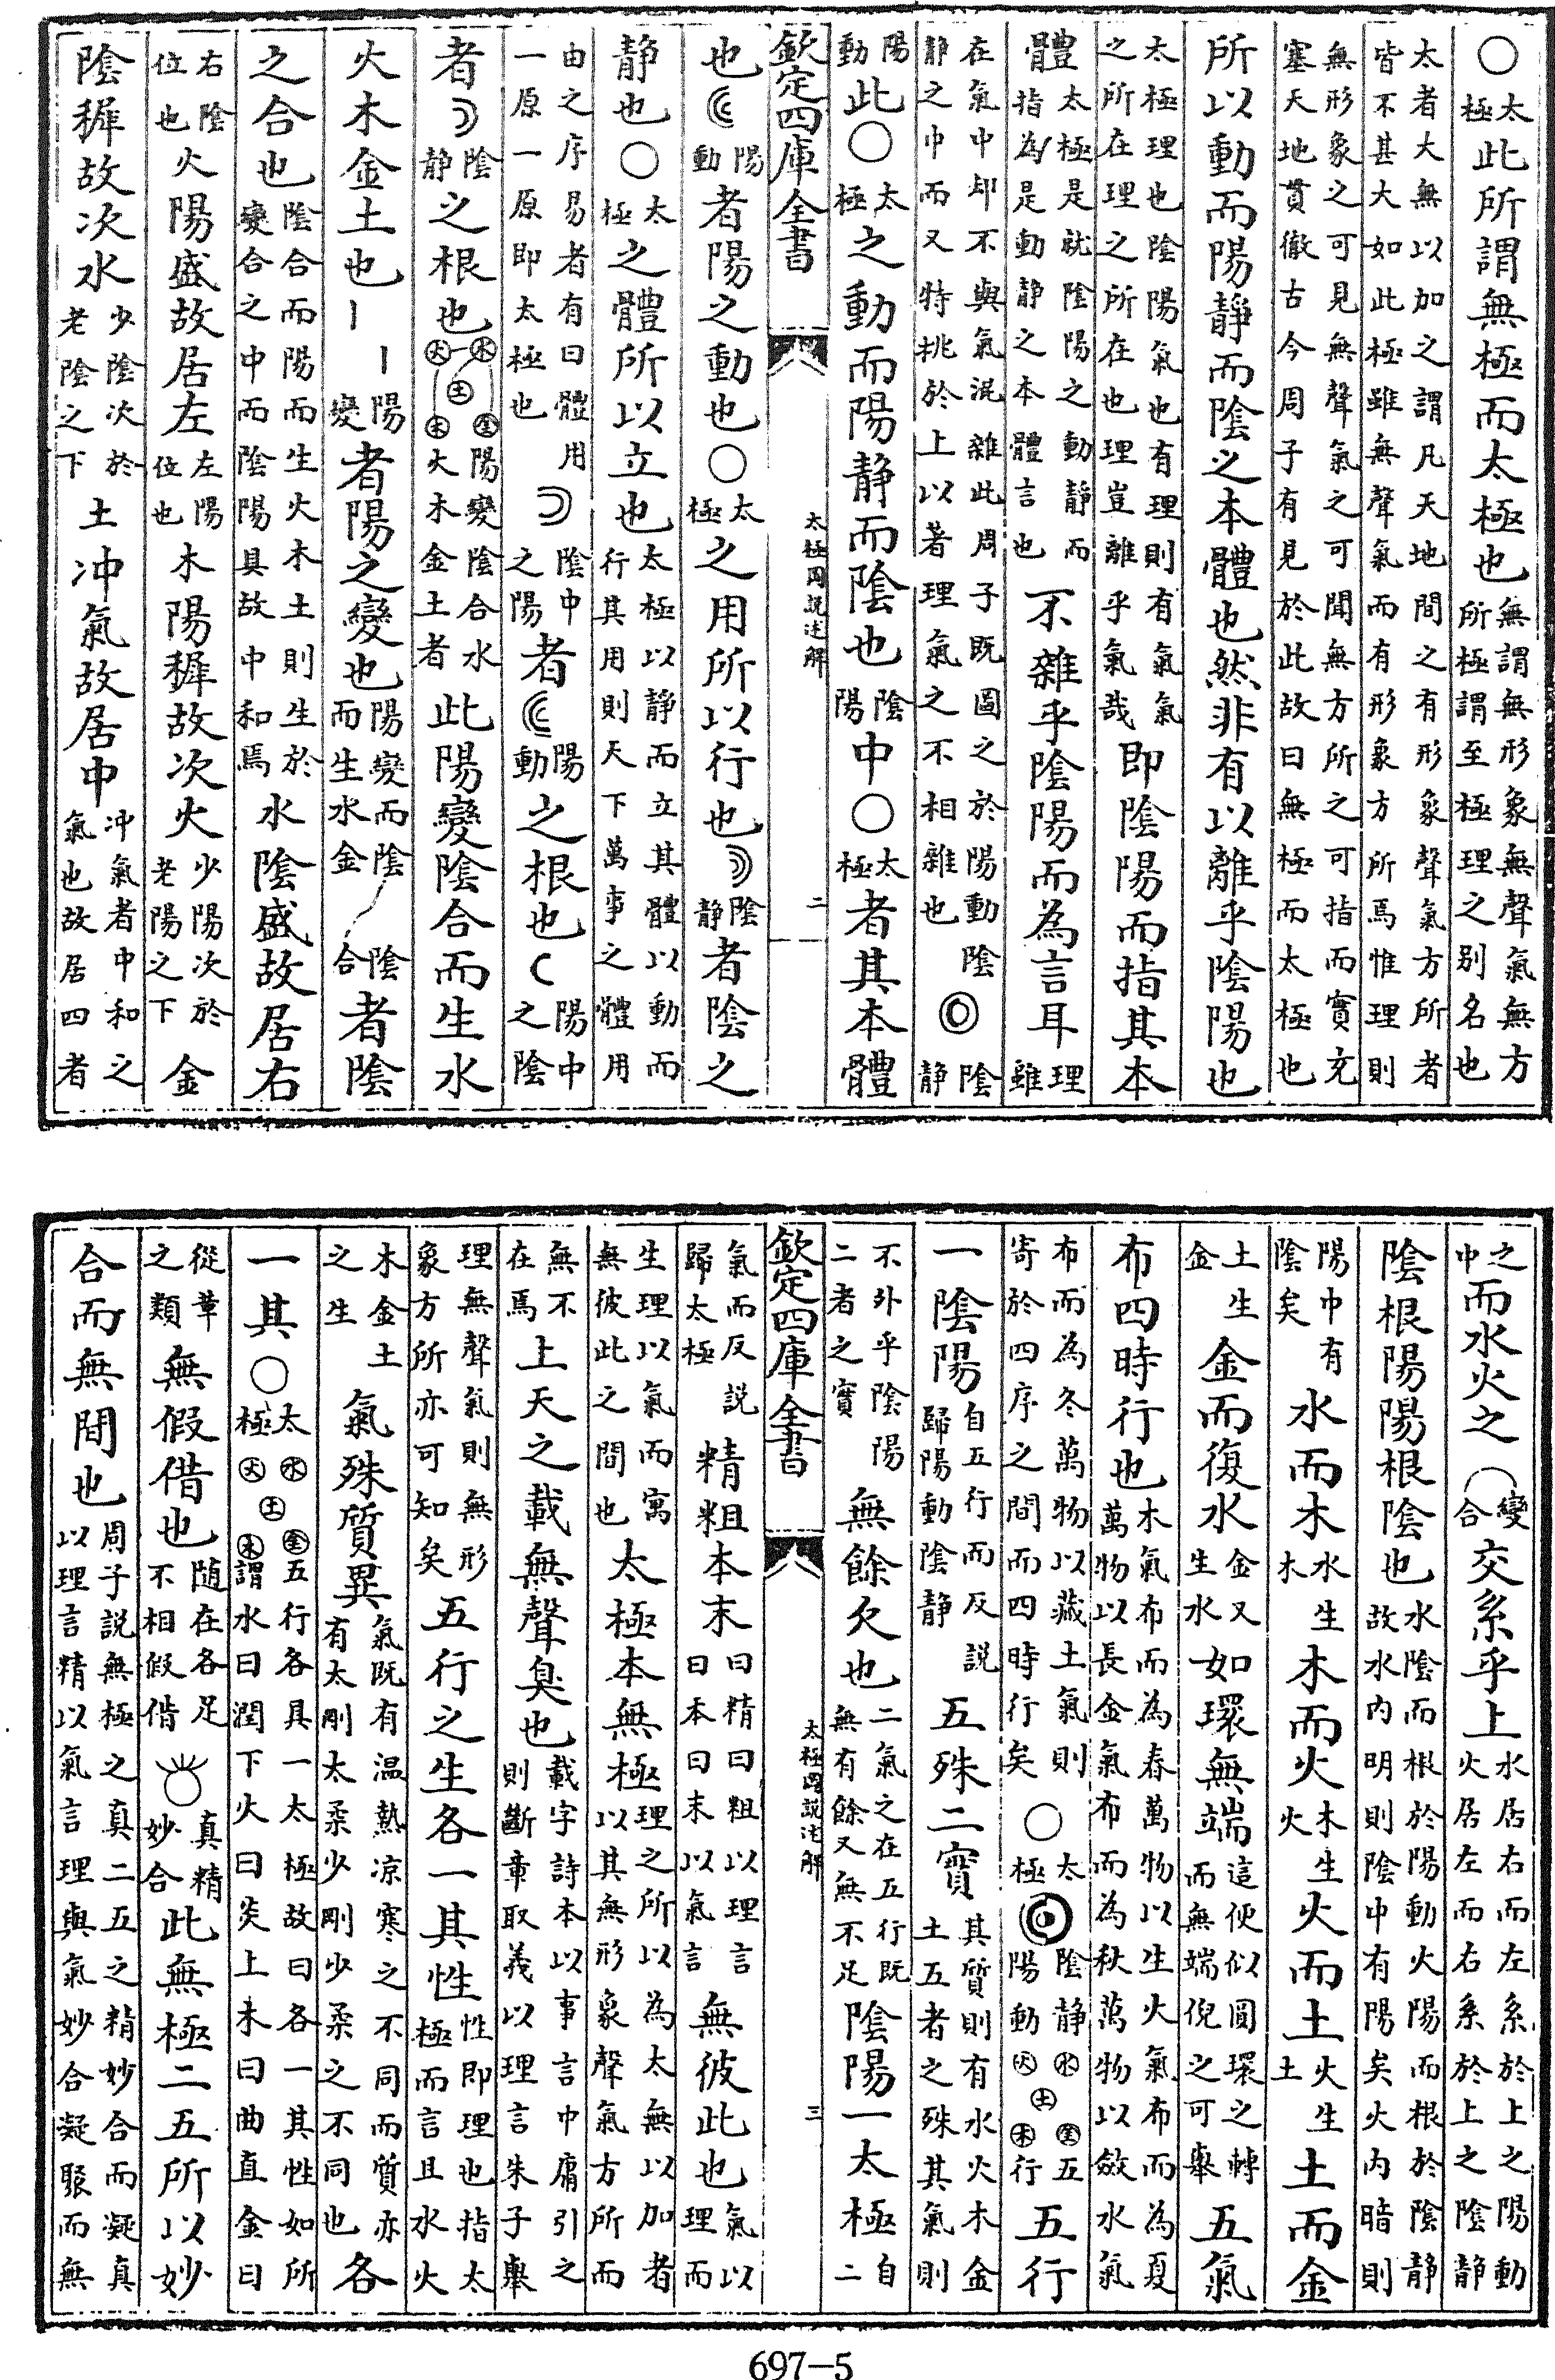 ○太極此所謂無極而太極也無謂無形象無聲氣無方
所極謂至極理之別名也
太者大無以加之謂凡天地間之有形象聲氣方所者
皆不甚大如此極雖無聲氣而有形象方所焉惟理則
無形象之可見無聲氣之可聞無方所之可指而實充
塞天地貫徹古今周子有見於此故曰無極而太極也
所以動而陽靜而陰之本體也然非有以離乎陰陽也
太極理也陰陽氣也有理則有氣氣
之所在理之所在也理豈離乎氣哉即陰陽而指其本
體太極是就陰陽之動靜而
指為是動靜之本體言也不雜乎陰陽而為言耳理雖
在氣中却不與氣混雜此周子既圖之於陽動陰
靜之中而又特挑於上以著理氣之不相雜也◎陰靜
陽動此○太極之動而陽靜而陰也陰陽中○太極者其本體
欽定四庫全書 太極圖說述解 二
也陽動者陽之動也○太極之用所以行也陰靜者陰之
靜也○太極之體所以立也太極以靜而立其體以動而
行其用則天下萬事之體用
由之序易者有曰體用
一原一原即太極也陰中之陽者陽動之根也陽中之陰
者陰靜之根也水火土金木陽變陰合水
火木金土者此陽變陰合而生水
火木金土也陽變者陽之變也陽變而陰
而生水金陰合者陰
之合也陰合而陽而生火木土則生於
變合之中而陰陽具故中和焉水陰盛故居右
右陰位也火陽盛故居左左陽位也木陽穉故次火少陽次於
老陽之下金
陰穉故次水少陰次於
老陰之下土冲氣故居中冲氣者中和之
氣也故居四者
之中而水火之變合交系乎上水居右而左系於上之陽動
火居左而右系於上之陰靜
陰根陽陽根陰也水陰而根於陽動火陽而根於陰靜
故水內明則陰中有陽矣火內暗則
陽中有
陰矣水而木水生木木而火木生火火而土火生土土而金
土生金金而復水金又生水如環無端這便似圓環之轉
而無端倪之可舉五氣
布四時行也木氣布而為春萬物以生火氣布而為夏
萬物以長金氣布而為秋萬物以斂水氣
布而為冬萬物以藏土氣則
寄於四序之間而四時行矣○太極◎陰靜陽動水火土金木五行五行
一陰陽自五行而反說
歸陽動陰靜五殊二實其質則有水火木金
土五者之殊其氣則
不外乎陰陽
二者之實無餘欠也二氣之在五行既
無有餘又無不足陰陽一太極自二
欽定四庫全書 太極圖說述解 三
氣而反說
歸太極精粗本末曰精曰粗以理言
曰本曰末以氣言無彼此也氣以
理而
生理以氣而寓
無彼此之間也太極本無極理之所以為太無以加者
以其無形象聲氣方所而
無不
在焉上天之載無聲臭也載字詩本以事言中庸引之
則斷章取義以理言朱子舉
理無聲氣則無形
象方所亦可知矣五行之生各一其性性即理也指太
極而言且水火
木金土
之生氣殊質異氣既有温熱凉寒之不同而質亦
有太剛太柔少剛少柔之不同也各
一其○太極水火土金木五行各具一太極故曰各一其性如所
謂水曰潤下火曰炎上木曰曲直金曰
從革
之類無假借也隨在各足
不相假借真精妙合此無極二五所以妙
合而無間也周子說無極之真二五之精妙合而凝真
以理言精以氣言理與氣妙合凝聚而無
697-5